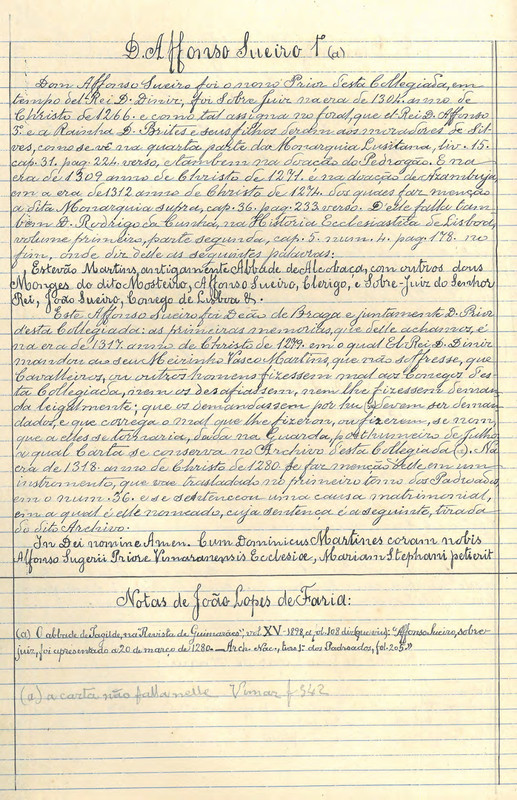 D. Affonso Sueiro 1º (a)
Dom Affonso Sueiro foi o nono Prior desta Collegiada, em
tempo del Rei D. Diniz, foi Sobre Juiz na era de 1304. anno de
Christo de 1266. e como tal assigna no foral, que el Rei D. Affonso
3º e a Rainha D. Brites e seus filhos deram aos moradores de Sil-
ves, como se vê na quarta parte da Monarquia Lusitana, liv. 15.
cap. 31. pag. 224. verso, e tambem na doação do Pedrogão. E na
era de 1309 anno de Christo de 1271. é na doação de Azambuja,
em a era de 1312 anno de Christo de 1274. dos quaes faz menção
a dita Monarquia supra, cap. 36. pag. 233. verso. D'este falla tam
bem D. Rodrigo da Cunha, na Historia Ecclesiastica de Lisboa,
volume primeiro, parte segunda, cap. 5. num. 4. pag. 178. no
fim, onde diz delle as seguintes palavras:
Estevão Martins, antigamente Abbade de Alcobaça, com outros dous
Monges do dito Moosteiro, Affonso Sueiro, Clerigo, e Sobre-Juiz do Senhor
Rei, João Sueiro, Conego de Lisboa &.
Este Affonso Sueiro foi Deão de Braga e juntamente D. Prior
desta Collegiada: as primeiras memorias, que delle achamos, é
na era de 1317. anno de Christo de 1299. em o qual El Rei D. Diniz
mandou ao seu Meirinho Vasco Martins, que não soffresse, que
Cavalleiros, ou outros homens fizessem mal aos Conegos des-
ta Collegiada, nem os desafiassem, nem lhe fizessem deman
da leigalmente; que os demandassem por hu devem ser deman
dados, e que correga o mal que lhe fizeron, ou fizerem, se nom,
que a elles se tornaria, dada na Guarda, postrumeiro de Julho,
a qual Carta se conserva no Archivo desta Collegiada (a). Na
era de 1318. anno de Christo de 1280. se faz menção delle em um
instromento, que vae trasladado no primeiro tomo dos Padroados,
em o num. 36. e se sentenceou uma causa matrimonial,
em a qual é elle nomeado, cuja sentença é a seguinte, tirada
do dito Archivo.
In Dei nomine Amen. Cum Dominicus Martines coram nobis
Alfonso Sugerii Priore Vimaranensis Ecclesiæ, Mariam Stephani petierit
Notas de João Lopes de Faria:
(a) O abbade de Tagilde, na "Revista de Guimarães", vol XV - 1898, a pl. 108 diz que vid: "Affonso Sueiro, sobre-
juiz, foi apresentado a 20 de março de 1280. — Arch. Nac., livro 1º dos Padroados, fol. 205."
(a) a carta não falla nelle Vimar f 342